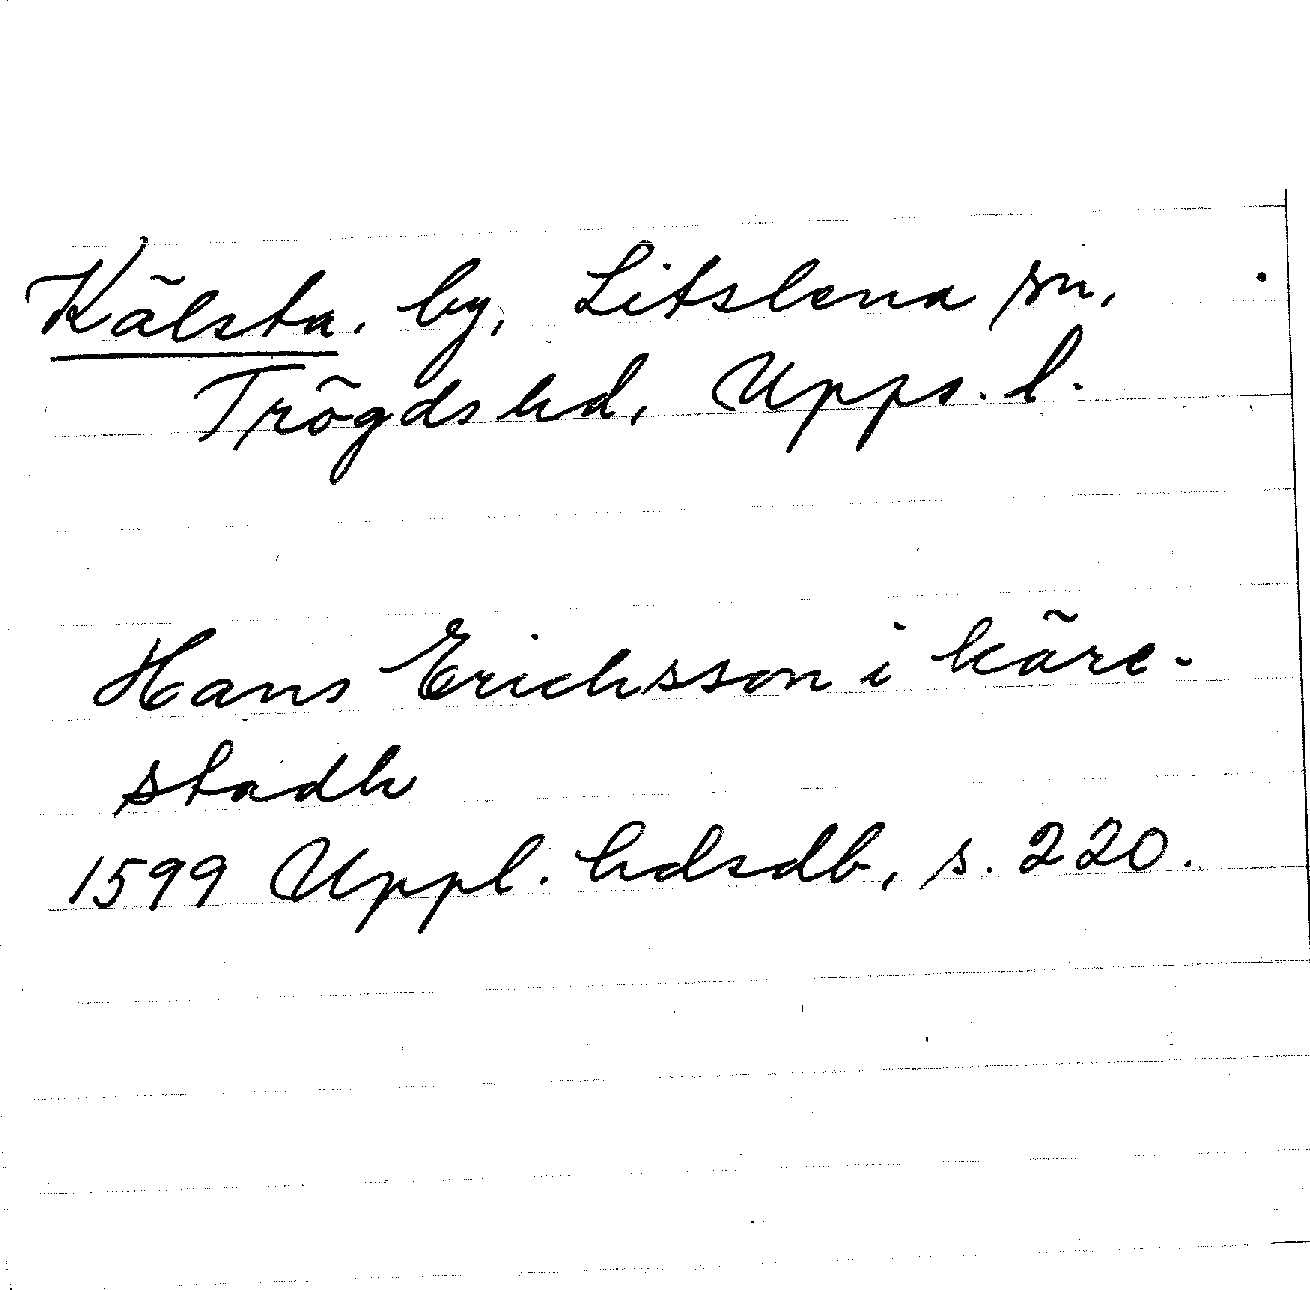 Kälsta, by, Litslena sn,
Trögds hd, Upps. l.
Hans Erichsson i käre-
stadh
1599 Uppl. hdsdb, s. 220.